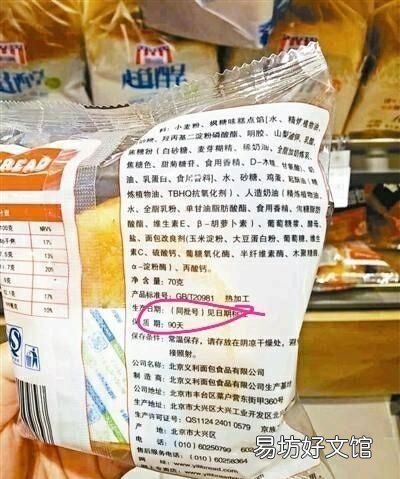 料：小麦粉、枫糖味糕点馅[水、精炼植物油、
糖、羟丙基二淀粉磷酸酯、明胶、山梨酸钾、乳酸、
焦糖粉（白砂糖、麦芽糊精、稀奶油、全脂加奶炼乳、
焦糖色、甜菊糖苷、食用香精、D-木糖、甘氨酸）、奶
油、乳蛋白、食用香料]、水、砂糖、鸡蛋、起酥油（精
炼植物油、TBHQ抗氧化剂）、人造奶油（精炼植物油、
水、全脂乳粉、单甘油脂肪酸酯、食用香精、焦糖脂肪
酸酯、维生素E、β-胡萝卜素）、葡萄糖浆、酵母、
盐、面包改良剂（玉米淀粉、大豆蛋白粉、葡萄糖、维生
素C、硫酸钙、葡糖氧化酶、半纤维素酶、木聚糖酶、
α-淀粉酶）、丙酸钙。
含量：70克
产品标准号：GB/T20981 热加工
生产日期：（同批号）见日期
保质期：90天
保存条件：常温保存，请存放在阴凉干燥处，避
接照射。
北京义利面包食品有限公司
制造商：北京义利面包食品有限公司
地址：北京市丰台区菜户营东街甲360号
北京市大兴区大兴工业开发区北兴
生产许可证号：QS1124 2401 0579 京
产地：北京市大兴区
电话：(010) 60250799
售后服务：(010) 60256364
www.yilibread.com
BREAD
NRV%
易坊好文馆